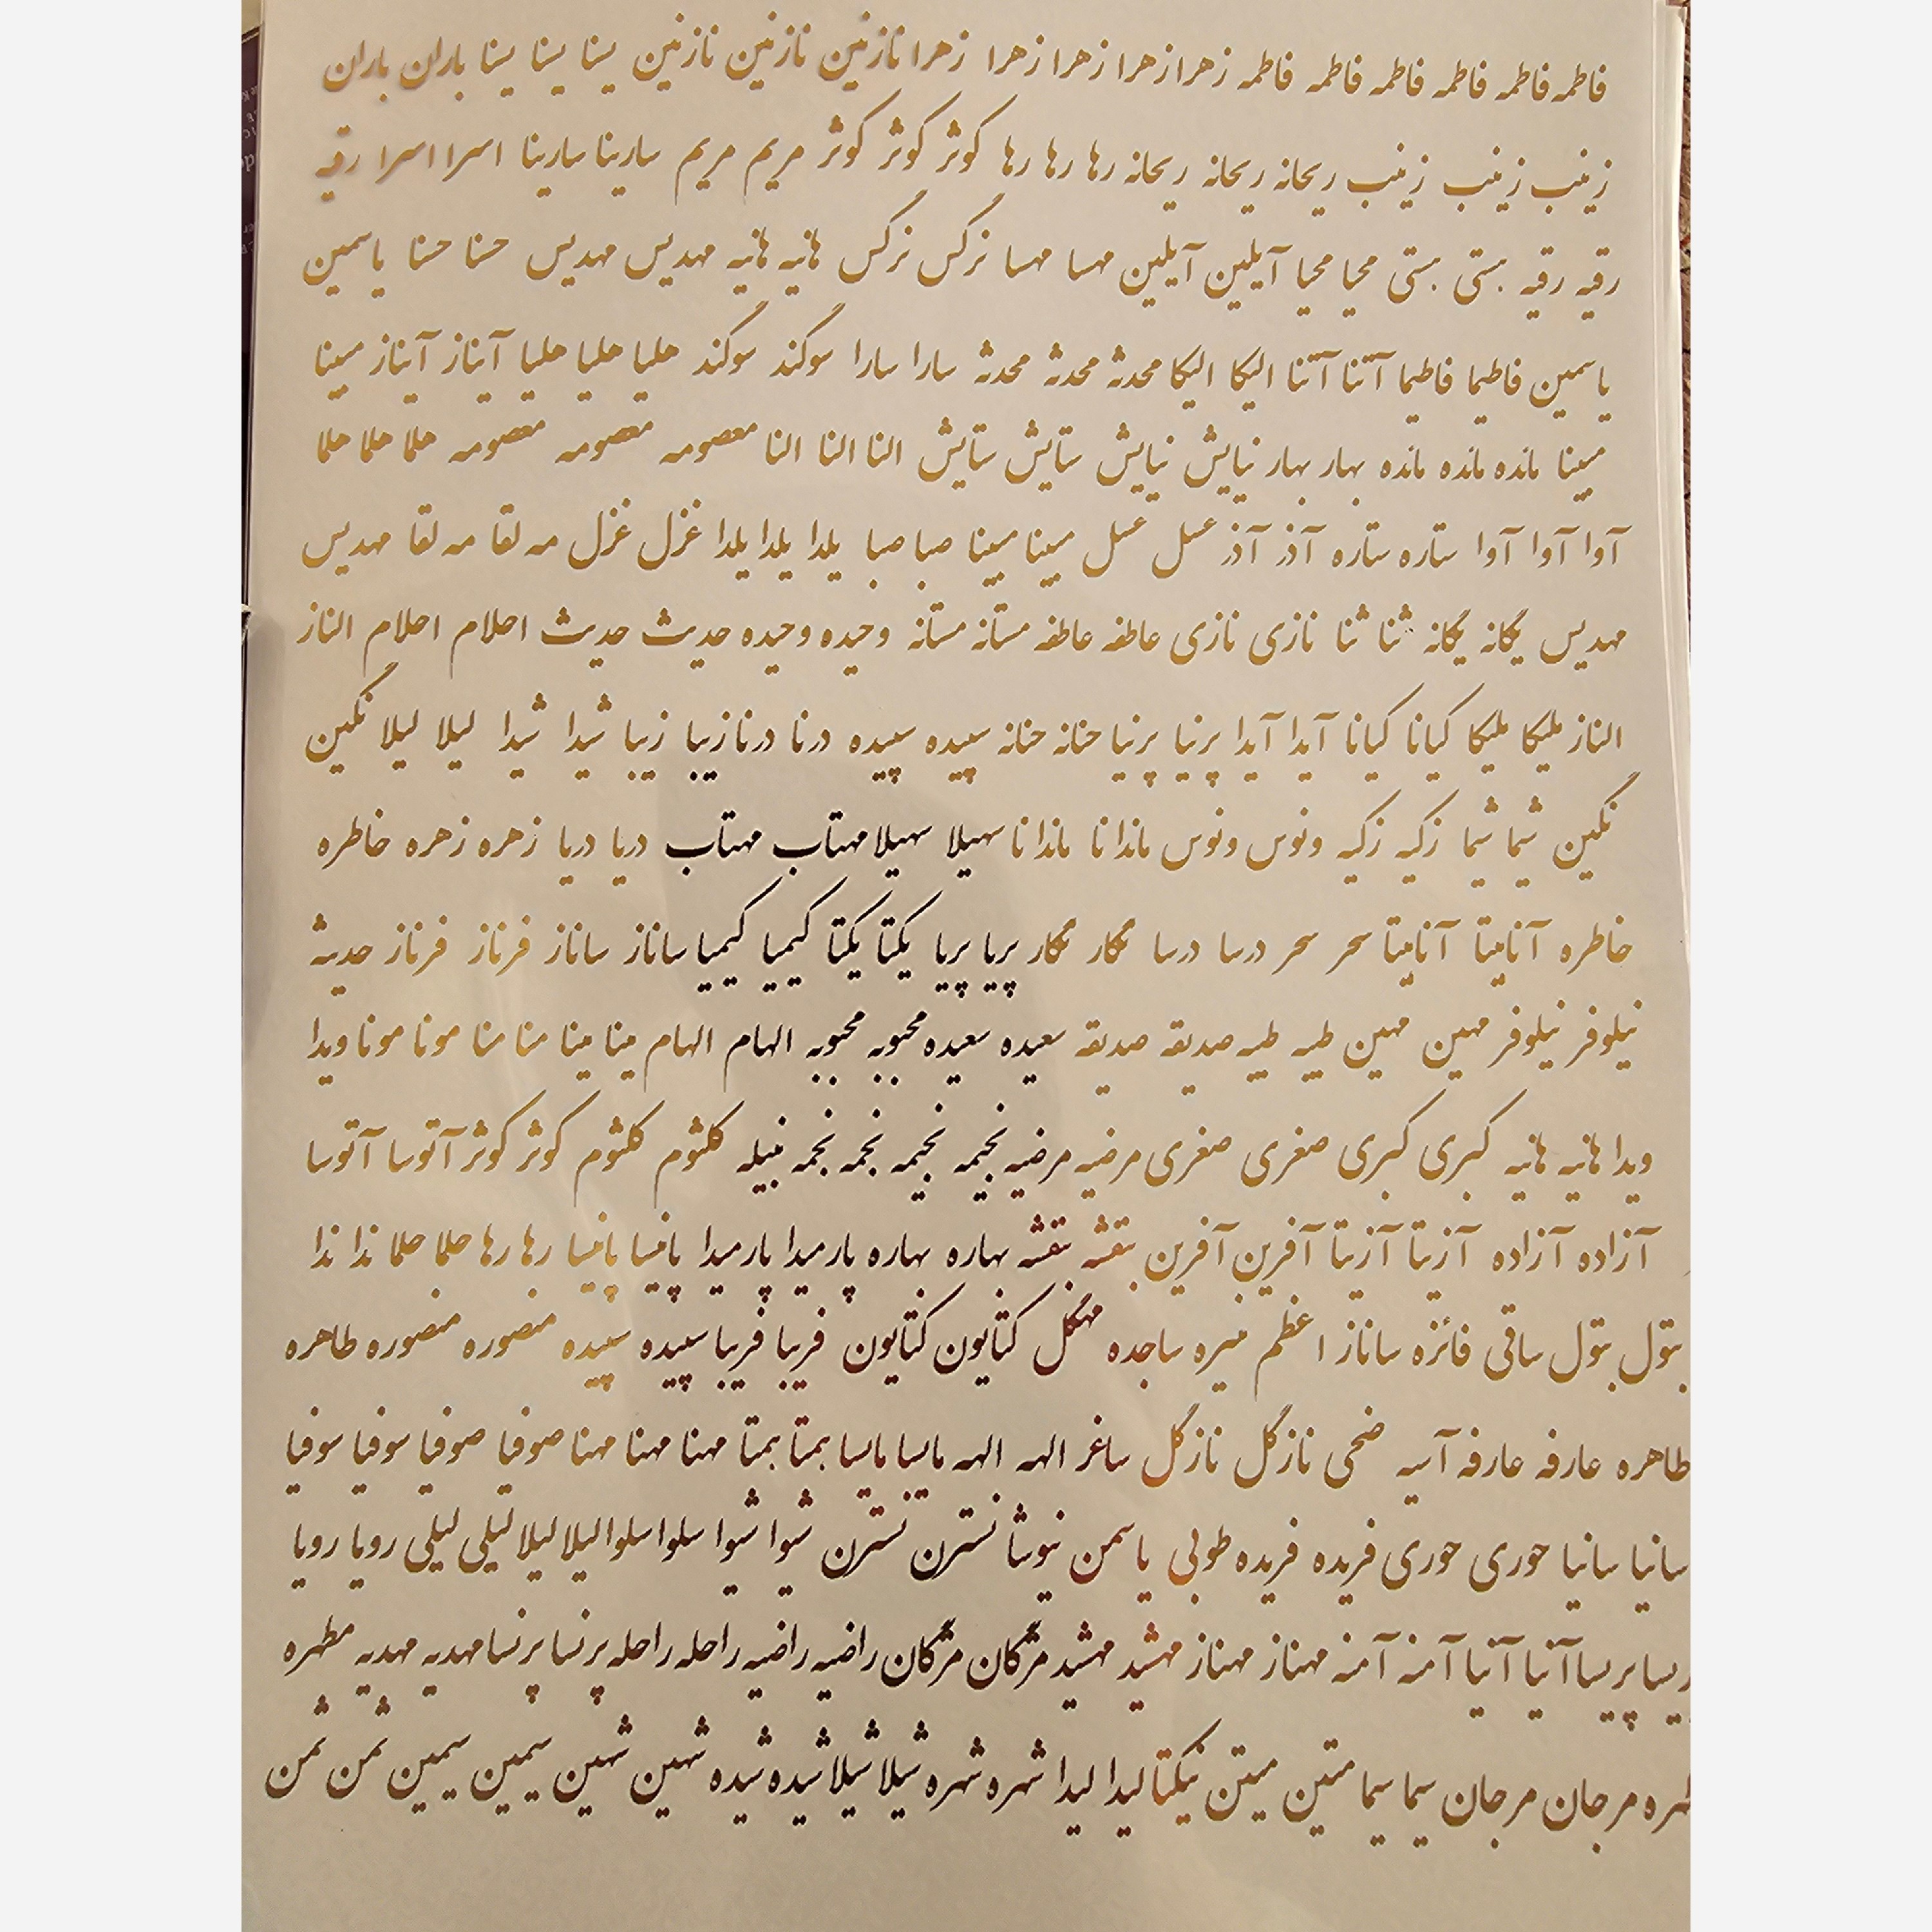 فاطمه فاطمه فاطمه فاطمه فاطمه فاطمه زهرا زهرا زهرا زهرا زهرا نازنین نازنین نازنین یسنا یسنا یسنا باران باران
زینب زینب زینب ریحانه ریحانه ریحانه رها رها رها کوثر کوثر کوثر مریم مریم سارینا سارینا اسرا اسرا رقیه
رقیه رقیه هستی هستی محیا محیا آیلین آیلین مهسا مهسا نرگس نرگس هانیه هانیه مهدیس مهدیس حسنا حسنا یاسمین
یاسمین فاطیما فاطیما آتنا آتنا الیکا الیکا محدثه محدثه محدثه سارا سارا سوگند سوگند هلیا هلیا هلیا آیناز آیناز مبینا
مبینا مائده مائده مائده بهار بهار نیایش نیایش ستایش ستایش النا النا النا معصومه معصومه معصومه هلما هلما هلما
آوا آوا آوا ستاره ستاره آذر آذر عسل عسل مبینا مبینا صبا صبا یلدا یلدا یلدا غزل غزل مه لقا مه لقا مهدیس
مهدیس یگانه یگانه ثنا ثنا نازی نازی عاطفه عاطفه مستانه مستانه وحیده وحیده حدیث حدیث احلام احلام الناز
الناز ملیکا ملیکا کیانا کیانا آیدا آیدا پرنیا پرنیا حنانه حنانه سپیده سپیده درنا درنا زیبا زیبا شیدا شیدا لیلا لیلا نگین
نگین شیما شیما زکیه زکیه ونوس ونوس ماندانا ماندانا سهیلا سهیلا مهتاب مهتاب دریا دریا زهره زهره خاطره
خاطره آناهیتا آناهیتا سحر سحر درسا درسا نگار نگار پریا پریا یکتا یکتا کیمیا کیمیا ساناز ساناز فرناز فرناز حدیثه
نیلوفر نیلوفر مهین مهین طیبه طیبه صدیقه صدیقه سعیده سعیده محبوبه محبوبه الهام الهام مینا مینا منا منا مونا مونا ویدا
ویدا هانیه هانیه کبری کبری صغری صغری مرضیه مرضیه نجیمه نجیمه نجمه نجمه نبیله کلثوم کلثوم کوثر کوثر آتوسا آتوسا
آزاده آزاده آزیتا آزیتا آفرین آفرین بنفشه بنفشه بهاره بهاره پارمیدا پارمیدا پانیسا پانیسا رها رها هلما هلما ندا ندا
بتول بتول ساقی فائزه ساناز اعظم منیره ساجده مهگل کتایون کتایون فریبا فریبا سپیده سپیده منصوره منصوره طاهره
طاهره عارفه عارفه آسیه ضحی نازگل نازگل ساغر الهه الهه مانیسا مانیسا همتا همتا مهنا مهنا مهنا صوفیا صوفیا سوفیا سوفیا
سانیا سانیا حوری حوری فریده فریده طوبی یاسمن نیوشا نسترن نسترن شیوا شیوا سلوا سلوا لیلا لیلا لیلی لیلی رویا رویا
پریسا پریسا آنیا آنیا آمنه آمنه مهناز مهناز مهشید مهشید مژگان مژگان راضیه راضیه راحله راحله پرنسا پرنسا مهدیه مهدیه مطهره
مطهره مرجان مرجان سیما سیما متین متین نیکتا لیدا لیدا شهره شهره شیلا شیلا شیده شیده شهین شهین سیمین سیمین ثمن ثمن